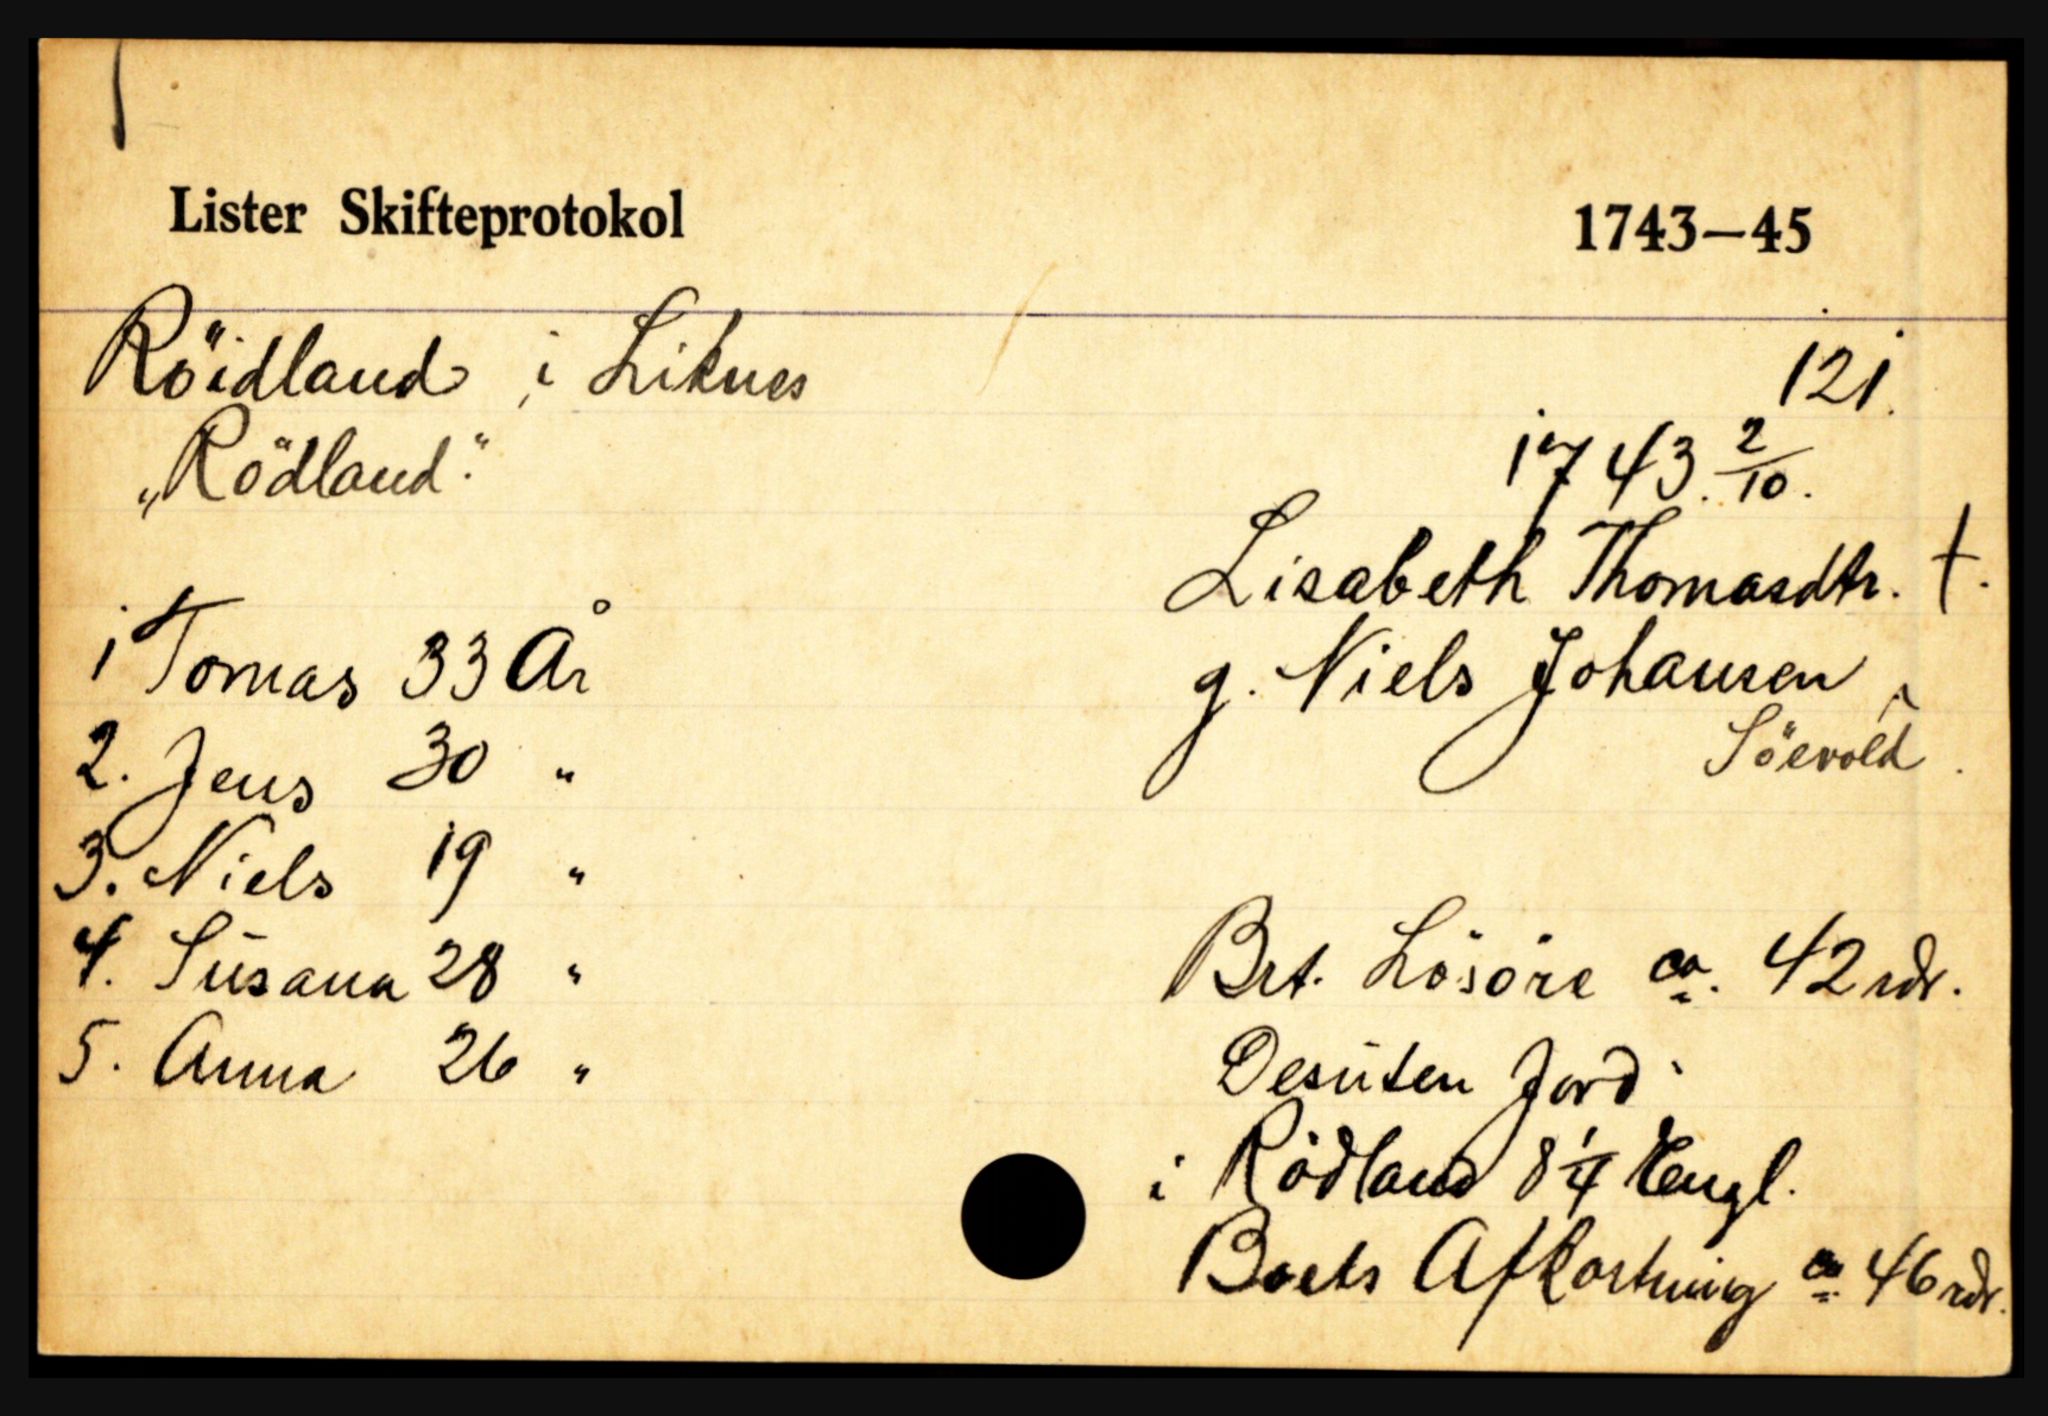 Lister Skifteprotokol 1743—45
Röidland i Liknes
121.
„Rödland."
1743. 2/10.
Lisabeth Thomasdtr. †.
g. Niels Johansen
Söevold.
1 Tomas 33 År
2. Jens 30 "
3. Niels 19 "
4. Susana 28 "
5. Anna 26 "
Brt. Lösöre ca. 42 rdr.
Desuten Jord
i Rödland 8 1/4 Engl.
Boets Afkortning ca 46 rdr.